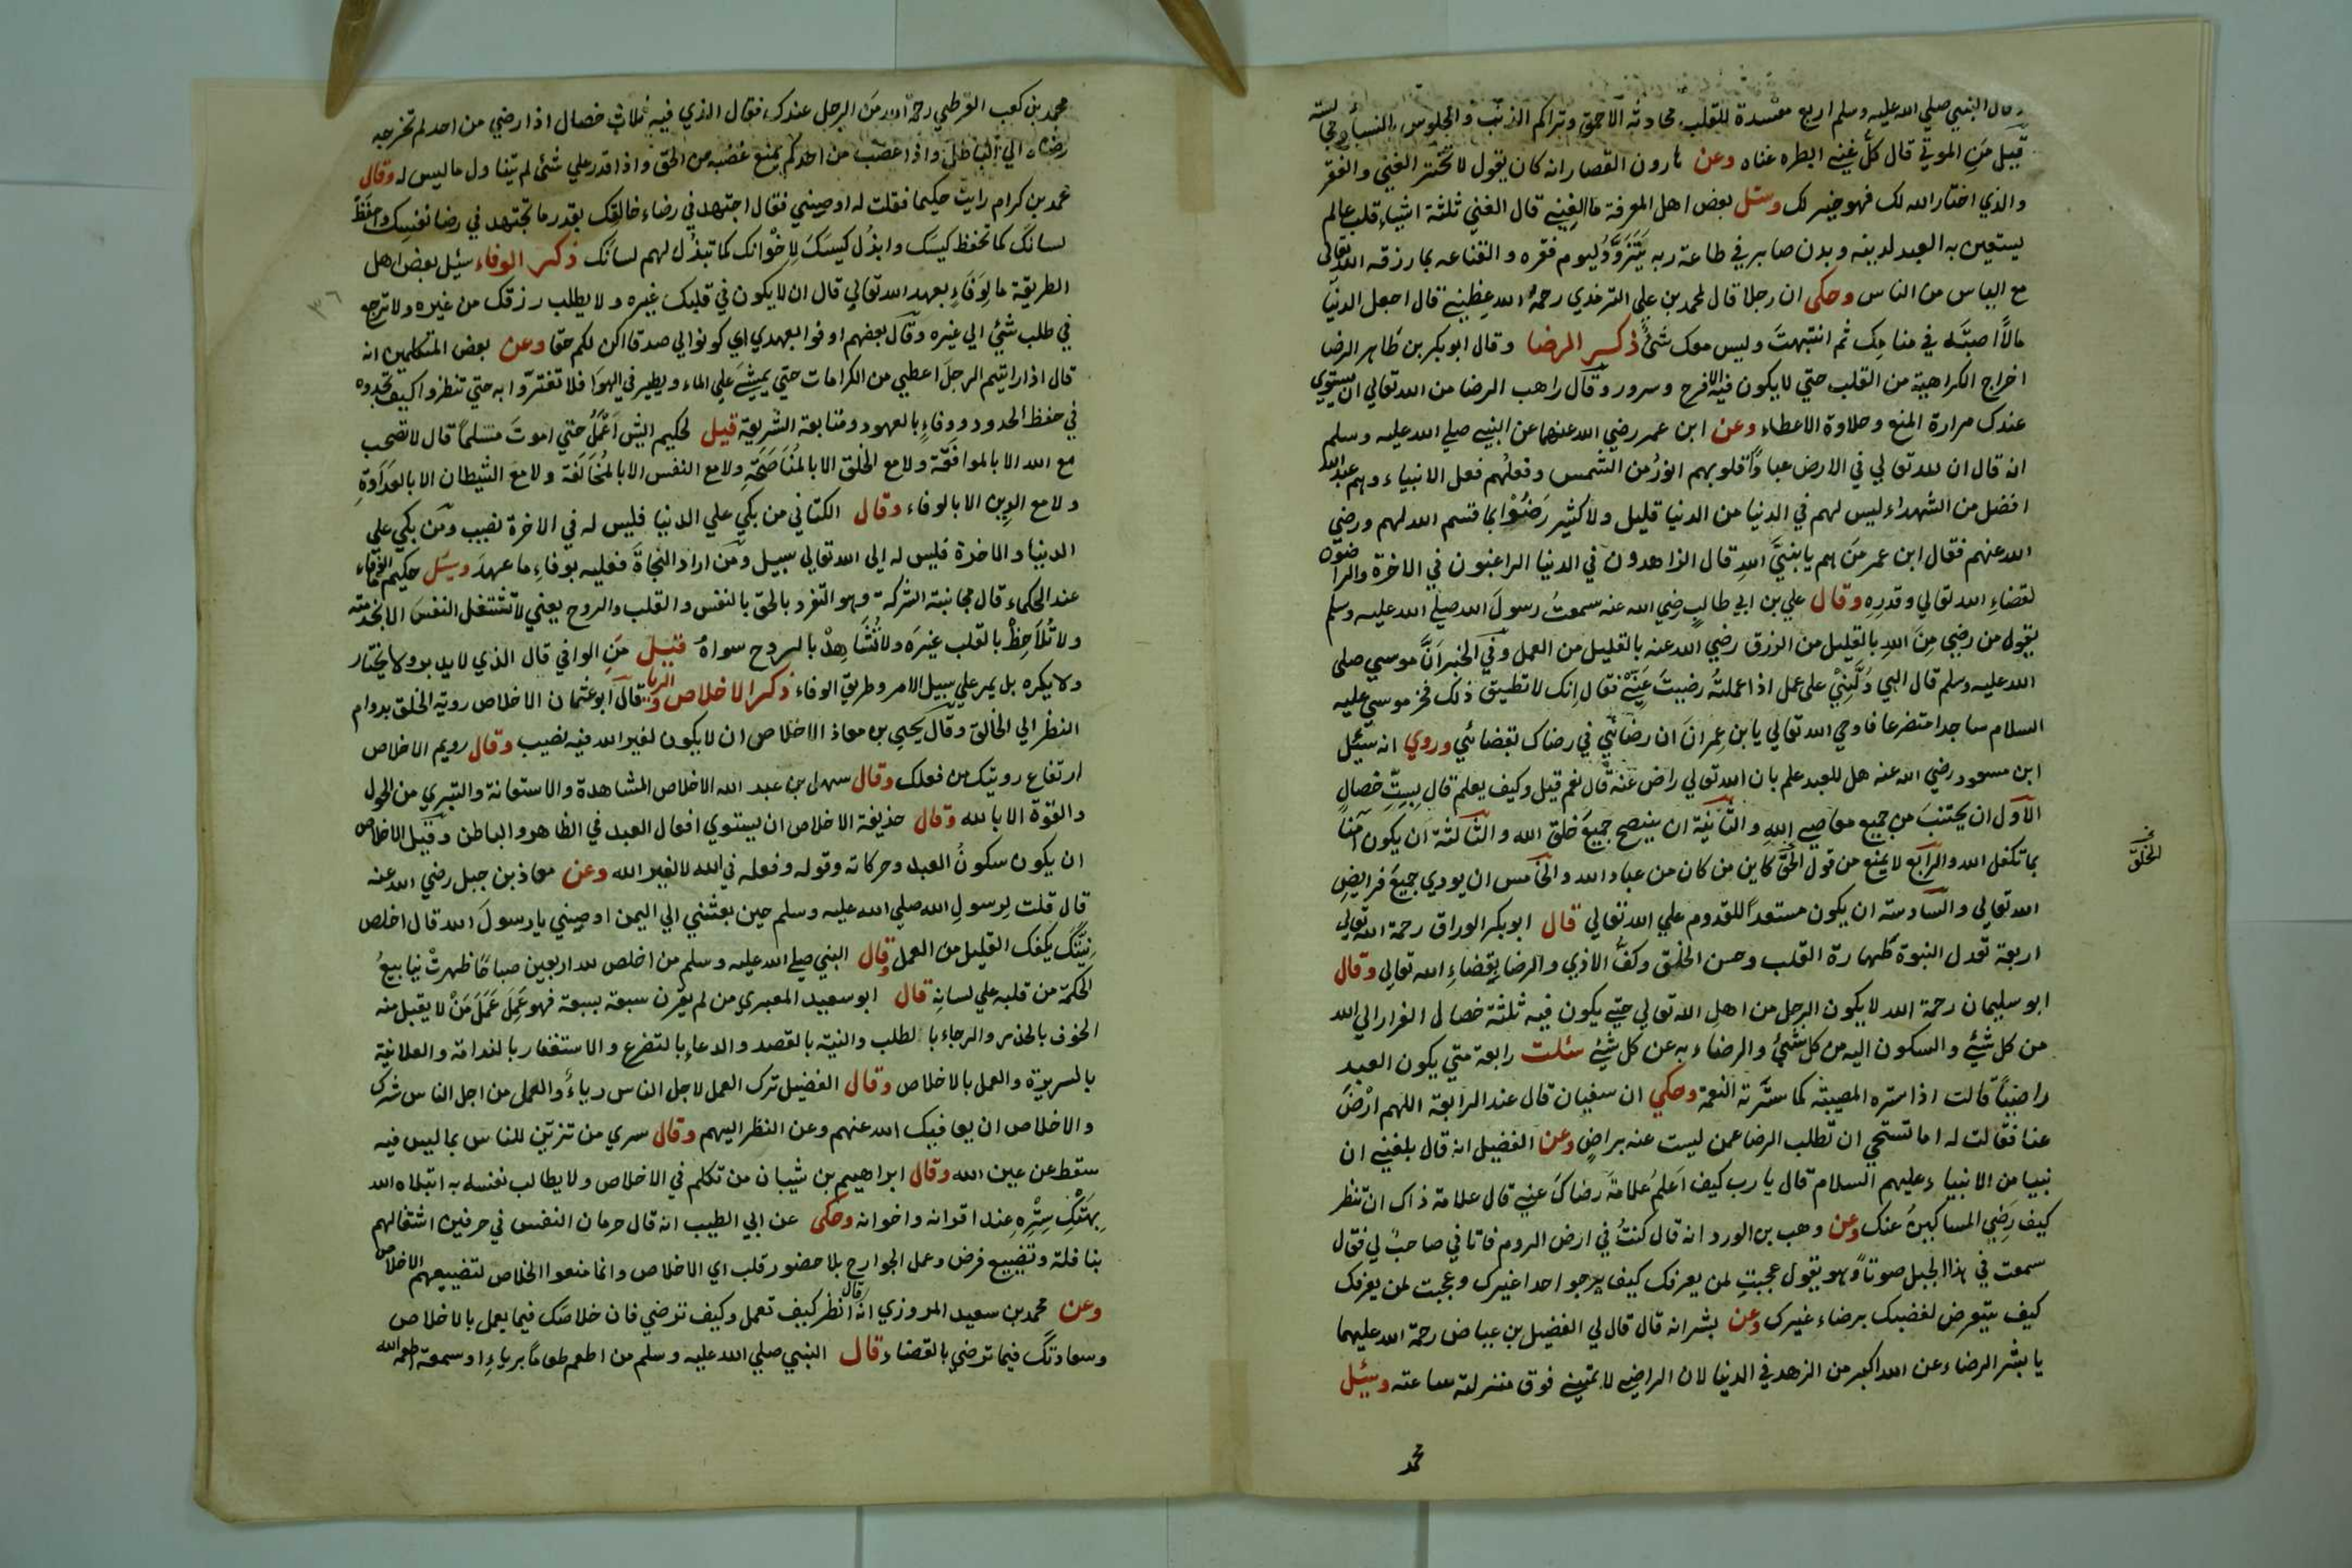 وقال النبي صلي الله عليه وسلم اربع مفسدة للقلب محادثة الاحمق وتراكم الذنب والجلوس النساء ومجالسة
قيل من الموتي قال كل غني ابطره غناه وعن هارون القصار انه كان يقول لا تختر الغني والفقر
والذي اختار الله لك فهو خير لك وسئل بعض اهل المعرفة ما الغني قال الغني ثلثة اشياء قلب عالم
يستعين به العبد لدينه وبدن صابر في طاعة ربه يتزود ليوم فقره والقناعه بما رزقه الله تعالى
مع الياس من الناس وحكى ان رجلا قال لمحمد بن علي الترمذي رحمه الله عظني قال اجعل الدنيا
مالا اصبته في منامك ثم انتبهت وليس معك شئ ذكر الرضا وقال ابو بكر بن طاهر الرضا
اخراج الكراهية من القلب حتي لا يكون فيه الا فرح وسرور وقال راهب الرضا من الله تعالي ان يستوي
عندك مرارة المنع وحلاوة الاعطاء وعن ابن عمر رضي الله عنهما عن النبي صلي الله عليه وسلم
انه قال ان لله تعالي في الارض عبادا قلوبهم انور من الشمس وفعلهم فعل الانبياء وهم عبد الله
افضل من الشهداء ليس لهم في الدنيا من الدنيا قليل ولا كثير رضوا بما قسم الله لهم ورضي
الله عنهم فقال ابن عمر من هم يا نبي الله قال الزاهدون في الدنيا الراغبون في الاخرة والراضون
لقضاء الله تعالي وقدره وقال علي بن ابي طالب رضي الله عنه سمعت رسول الله صلي الله عليه وسلم
يقول من رضي من الله بالقليل من الرزق رضي الله عنه بالقليل من العمل وفي الخبر ان موسي صلى
الله عليه وسلم قال الهي دلني على عمل اذا عملته رضيت عني فقال انك لا تطيق ذلك فخر موسي عليه
السلام ساجدا متضرعا فاوحي الله تعالي يا بن عمران ان رضائي في رضاك بقضائي وروي انه سئل
ابن مسعود رضي الله عنه هل للعبد علم بان الله تعالي راض عنه قال نعم قيل وكيف يعلم قال بست خصال
الاول ان يجتنب من جميع معاصي الله والثانية ان ينصح جميع خلق الله والثالثة ان يكون آمنا
بما تكفل الله والرابع لا يمنع من قول الحق كاين من كان من عباد الله والخامس ان يودي جميع فرايض
الله تعالي والسادسة ان يكون مستعدا للقدوم علي الله تعالي قال ابو بكر الوراق رحمة الله تعالي
اربعة تعدل النبوة طهارة القلب وحسن الخلق وكف الاذي والرضا بقضاء الله تعالي وقال
ابو سليمان رحمة الله لا يكون الرجل من اهل الله تعالي حتي يكون فيه ثلثة خصال الفرار الي الله
من كل شئ والسكون اليه من كل شئ والرضاء به عن كل شئ سئلت رابعة متي يكون العبد
راضيا قالت اذا سره المصيبة كما سرته النعمة وحكي ان سفيان قال عند الرابعة اللهم ارض
عنا فقالت له اما تستحي ان تطلب الرضا عمن ليست عنه براض وعن الفضيل انه قال بلغني ان
نبيا من الانبياء عليهم السلام قال يا رب كيف اعلم علامة رضاك عني قال علامة ذاك ان تنظر
كيف رضي المساكين عنك وعن وهب بن الورد انه قال كنت في ارض الروم فاتاني صاحب لي فقال
سمعت في هذا الجبل صوتا وهو يقول عجبت لمن يعرفك كيف يرجو احدا غيرك وعجبت لمن يعرفك
كيف يتعرض لغضبك برضاء غيرك وعن بشر انه قال قال لي الفضيل بن عياض رحمة الله عليهما
يا بشر الرضاء عن الله اكبر من الزهد في الدنيا لان الراضي لا يتمني فوق منزلته ساعته وسئل
محمد
الخلق
محمد بن كعب القرظي رحمة الله من الرجل عندك فقال الذي فيه ثلاث خصال اذا رضي من احد لم تخرجه
رضاه الي الباطل واذا غضب من احدكم يمنع غضبه من الحق واذا قدر علي شئ لم يتناول ما ليس له وقال
محمد بن كرام رايت حكيما فقلت له اوصيني فقال اجتهد في رضاء خالقك بقدر ما تجتهد في رضا نفسك واحفظ
لسانك كما تحفظ كيسك وابذل كيسك لاخوانك كما تبذل لهم لسانك ذكر الوفاء سئيل بعض اهل
٣٦
الطريقة ما لوفاء بعهد الله تعالي قال ان لا يكون في قلبك غيره ولا يطلب رزقك من غيره ولا ترجع
في طلب شيئ الي غيره وقال بعضهم اوفوا بعهدي اي كونوا لي صدقا اكن لكم حقا وعن بعض المتكلمين انه
قال اذا رايتم الرجل اعطي من الكرامات حتي يمشي علي الماء ويطير في الهوا فلا تغتروا به حتي تنظروا كيف تجدوه
في حفظ الحدود ووفاء بالعهود ومتابعة الشريعة قيل لحكيم ايش اعمل حتي اموت مسلما قال لا تصحب
مع الله الا بالموافقة ولا مع الخلق الا بالمناصحة ولا مع النفس الا بالمخالفة ولا مع الشيطان الا بالعداوة
ولا مع الدين الا بالوفاء وقال الكتاني من بكي علي الدنيا فليس له في الاخرة نصيب ومن بكي علي
الدنيا والاخرة فليس له الى الله تعالي سبيل ومن اراد النجاة فعليه بوفاء ما عهد وسئل حكيم الوفاء
عند الحكماء قال مجانبة الشركة وهو التفرد بالحق بالنفس والقلب والروح يعني لا تشتغل النفس الا بخدمته
ولا تلاحظ بالقلب غيره ولا تشاهد بالروح سواه قيل من الوافي قال الذي لا يريد ولا يختار
ولا يكره بل يمر علي سبيل الامر وطريق الوفاء ذكر الاخلاص والريا قال ابو عثمان الاخلاص روية الخلق بدوام
النظر الي الخالق وقال يحيي بن معاذ الاخلاص ان لا يكون لغير الله فيه نصيب وقال رويم الاخلاص
ارتفاع رويتك من فعلك وقال سهل بن عبد الله الاخلاص المشاهدة والاستعانة والتبري من الحول
والقوة الا بالله وقال حذيفة الاخلاص ان يستوي افعال العبد في الظاهر والباطن وقيل الاخلاص
ان يكون سكون العبد وحركاته وقوله وفعله في الله لا لغير الله وعن معاذ بن جبل رضي الله عنه
قال قلت لرسول الله صلي الله عليه وسلم حين بعثني الي اليمن اوصيني يا رسول الله قال اخلص
نيتك يكفك القليل من العمل وقال النبي صلي الله عليه وسلم من اخلص لله اربعين صباحا ظهرت ينابيع
الحكمة من قلبه علي لسانه قال ابو سعيد المعبري من لم يقرن سبعة بسبعة فهو عمل عمل من لا يقبل منه
الخوف بالحذر والرجاء بالطلب والنية بالقصد والدعاء بالتضرع والاستغفار بالندامة والعلانية
بالسريرة والعمل بالاخلاص وقال الفضيل ترك العمل لاجل الناس رياء والعمل من اجل الناس شرك
والاخلاص ان يعافيك الله عنهم وعن النظر اليهم وقال سري من تزين للناس بما ليس فيه
سقط عن عين الله وقال ابراهيم بن شيبان من تكلم في الاخلاص ولا يطالب نفسه به ابتلاه الله
بهتك ستره عند اقرانه واخوانه وحكى عن ابي الطيب انه قال حرمان النفس في حرفين اشتغالهم
بنافلة وتضييع فرض وعمل الجوارح بلا حضور قلب اي الاخلاص وانما منعوا الخلاص لتضييعهم الاخلاص
وعن محمد بن سعيد المروزي انه قال انظر كيف تعمل وكيف ترضي فان خلاصك فيما يعمل بالاخلاص
وسعادتك فيما ترضي بالقضاء قال النبي صلي الله عليه وسلم من اطعم طعاما برياء او سمعة اطعمه الله